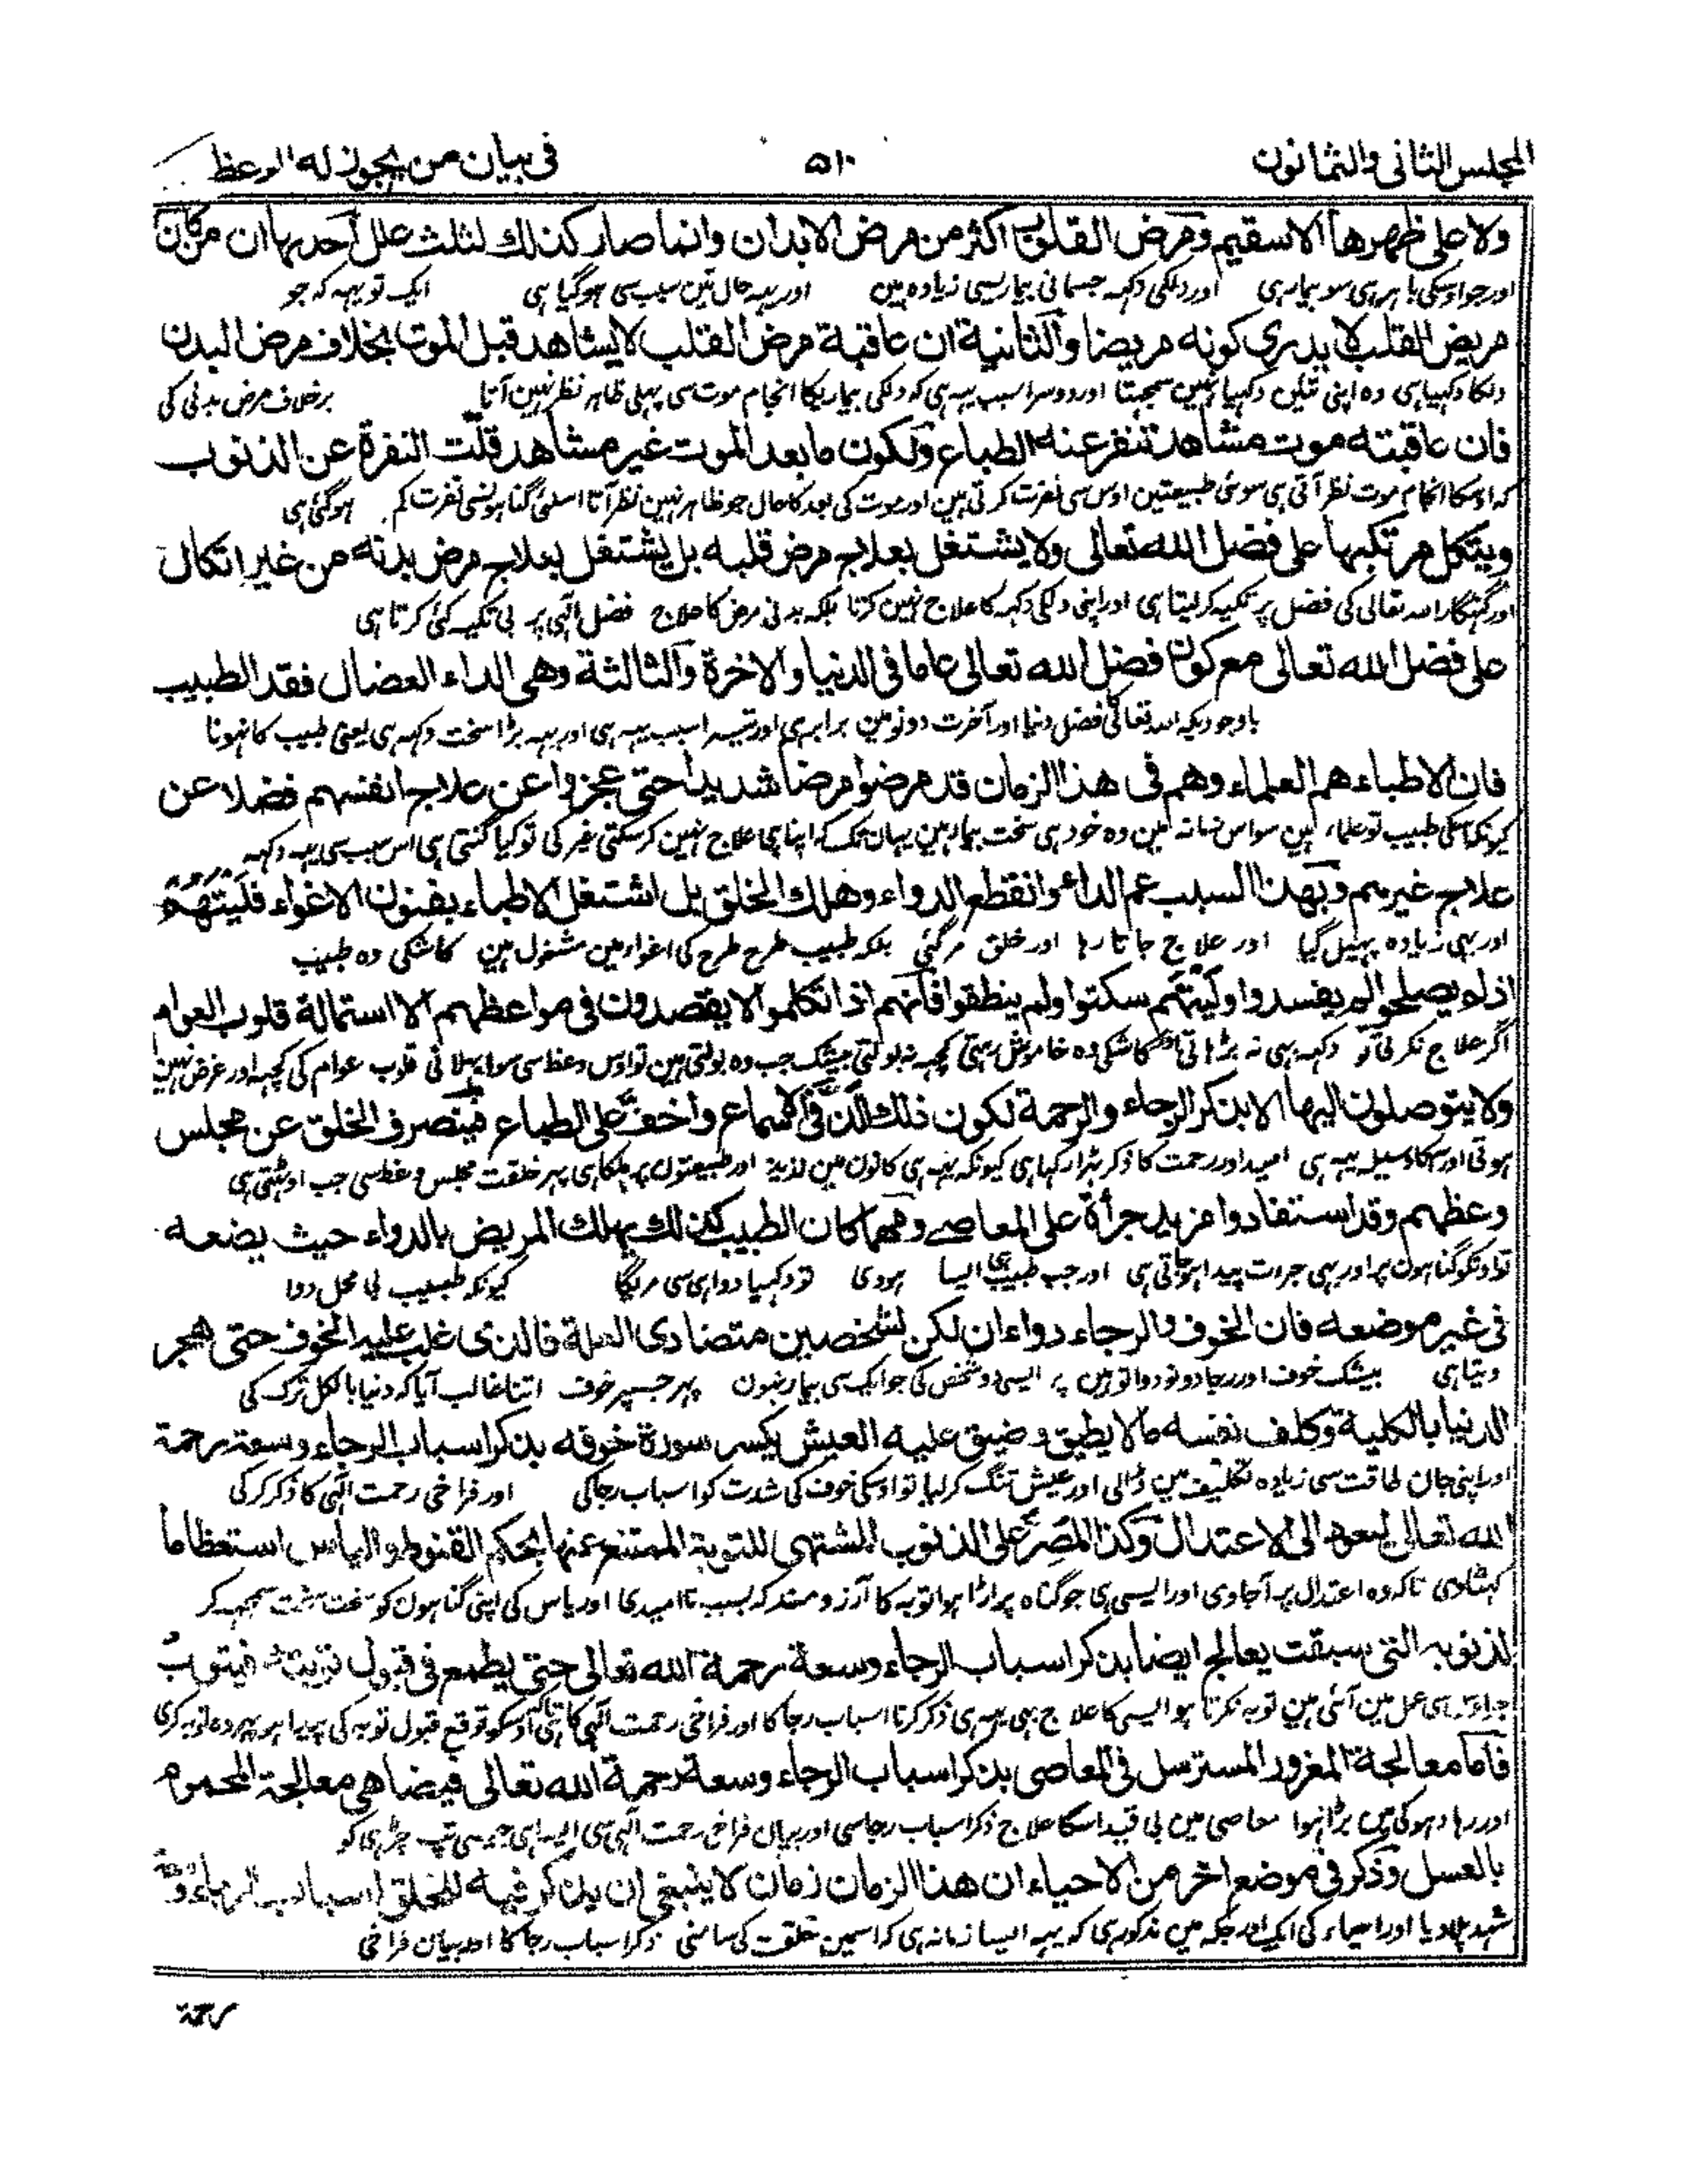 المجلس الثانی والثمانون
۵۱۰
فی بیان من یجوز له الوعظ
ولا علی ظهرها الا سقیم ومرض القلوب اکثر من مرض الابدان وانما صار کذلك لثلث علل احدیها ان من کان
اور جو اوسکی باہر ہی سو بیمار ہی اور دلکی دکہہ جسمانی بیماریسی زیادہ ہین اور یہہ حال تین سبب سی ہوگیا ہی ایک تو یہہ کہ جو
مریض القلب لا یدری کونه مریضا والثانیة ان عاقبة مرض القلب لا یشاهد قبل الموت بخلاف مرض البدن
دلکا دکہیا ہی وہ اپنی تئین دکہیا نہین سمجہتا اور دوسرا سبب یہہ ہی کہ دلکی بیماریکا انجام موت سی پہلی ظاہر نظر نہین آتا برخلاف مرض بدنی کی
فان عاقبته موت مشاهد تنفر عنه الطباع ولکون ما بعد الموت غیر مشاهد قلّت النفرة عن الذنوب
کہ اوسکا انجام موت نظر آتی ہی سوئی طبیعتین اوس سی نفرت کرتی ہین اور موت کی بعد کا حال جو ظاہر نہین نظر آتا اسلئی گناہونسی نفرت کم ہوگئی ہی
ویتکل مرتکبها علی فضل الله تعالی ولا یشتغل بعلاج مرض قلبه بل یشتغل بعلاج مرض بدنه من غیر اتکال
اور گنہگار اللہ تعالی کی فضل پر تکیہ کرلیتا ہی اور اپنی دلکی دکہہ کا علاج نہین کرتا بلکہ بدنی مرض کا علاج فضل الہی پر بی تکیہ کئی کرتا ہی
علی فضل الله تعالی مع کون فضل الله تعالی عاما فی الدنیا والاخرة والثالثة وهی الداء العضال فقد الطبیب
باوجودیکہ اللہ تعالی فضل دنیا اور آخرت دونو مین برابر ہی اور تیسرا سبب یہہ ہی اور یہہ بڑا سخت دکہہ ہی یعنی طبیب کا نہونا
فان الاطباء هم العلماء وهم فی هذا الزمان قد مرضوا مرضا شدیدا حتی عجزوا عن علاج انفسهم فضلا عن
کیونکہ اسکی طبیب تو علماء ہین سو اس زمانہ مین وہ خود ہی سخت بیمار ہین یہان تک کہ اپنا ہی علاج نہین کرسکتی غیر کی تو کیا گنتی ہی اس سبب سی یہہ دکہہ
علاج غیرهم وبهذا السبب عم الداء وانقطع الدواء وهلك الخلق بل اشتغل الاطباء بفنون الاغواء فلیتهم
اور بہی زیادہ پہیل گیا اور علاج جاتا رہا اور خلق مرگئی بلکہ طبیب طرح طرح کی اغواء مین مشغول ہین کاشکی وہ طبیب
اذ لم یصلحوا لم یفسدوا ولیتهم سکتوا ولم ینطقوا فانهم اذا تکلموا لا یقصدون فی مواعظهم الا استمالة قلوب العوام
اگر علاج نکرتی تو دکہہ بہی نہ بڑہاتی کاشکی وہ خاموش رہتی کچہہ نہ بولتی بیشک جب وہ بولتی ہین تو اوس وعظ سی سواء پہلانی قلوب عوام کی کچہہ اور غرض نہین
ولا یتوصلون الیها الا بذکر الرجاء والرحمة لکون ذلك الذّ فی الاسماع واخف علی الطباع فینصرف الخلق عن مجلس
ہوتی اور اسکا وسیلہ یہہ ہی امید اور رحمت کا ذکر کیونکہ یہہ ہی کانون مین لذیذ اور طبیعتون پر ہلکا ہی پہر خلقت مجلس وعظ سی جب اوٹہتی ہی
وعظهم وقد استفادوا مزید جرأة علی المعاصی ومهما کان الطبیب کذلك یهلك المریض بالدواء حیث یضعه
تو اونکو گناہون پر اور بہی جرات پیدا ہوجاتی ہی اور جب طبیب ہی ایسا ہووی تو دکہیا دوا ہی سی مریگا کیونکہ طبیب بی محل دوا
فی غیر موضعه فان الخوف والرجاء دواءان لکن لشخصین متضادی العلة فالذی غلب علیه الخوف حتی هجر
دیتا ہی بیشک خوف اور رجا دونو دوا تو ہین پر ایسی دو شخص کی جو ایک سی بیمار نہون پہر جسپر خوف اتنا غالب آیا کہ دنیا بالکل ترک کی
الدنیا بالکلیة وکلف نفسه ما لا یطیق وضیق علیه العیش یکسر سورة خوفه بذکر اسباب الرجاء وسعة رحمة
اور اپنی جان طاقت سی زیادہ تکلیف مین ڈالی اور عیش تنگ کرلیا تو اوسکی خوف کی شدت کو اسباب رجا کی اور فراخی رحمت الہی کا ذکر کرکی
الله تعالی لیعود الی الاعتدال وکذا المصر علی الذنوب المشتهی للتوبة الممتنع عنها بحکم القنوط والیاس استعظاما
گہٹادی تاکہ وہ اعتدال پر آجاوی اور ایسی ہی جو گناہ پر اڑا ہوا توبہ کا آرزومند کہ بسبب ناامیدی اور یاس کی اپنی گناہون کو سمجہہ کر
لذنوبه التی سبقت یعالج ایضا بذکر اسباب الرجاء وسعة رحمة الله تعالی حتی یطمع فی قبول توبته فیتوب
عمل مین آئی ہین توبہ نکرتا ہو ایسی کا علاج بہی یہہ ہی ذکر کرنا اسباب رجا کا اور فراخی رحمت الہی کا تاکہ اوسکو توقع قبول توبہ کی پیدا ہو پہر وہ توبہ کری
فاما معالجة المغرور المسترسل فی المعاصی بذکر اسباب الرجاء وسعة رحمة الله تعالی فیضاهی معالجة المحموم
اور رہا دہوکی مین پڑا ہوا معاصی مین بی قید اسکا علاج ذکر اسباب رجا سی اور بیان فراخی رحمت الہی سی ایسا ہی جیسی تپ چڑہی کو
بالعسل وذکر فی موضع اخر من الاحیاء ان هذا الزمان زمان لا ینبغی ان یذکر فیه للخلق اسباب الرجاء وسعة
شہد پلا دیا اور احیاء کی ایک اور جگہ مین مذکور ہی کہ یہہ ایسا زمانہ ہی کہ اسمین خلقت کی سامنی ذکر اسباب رجا کا اور بیان فراخی
رحمة